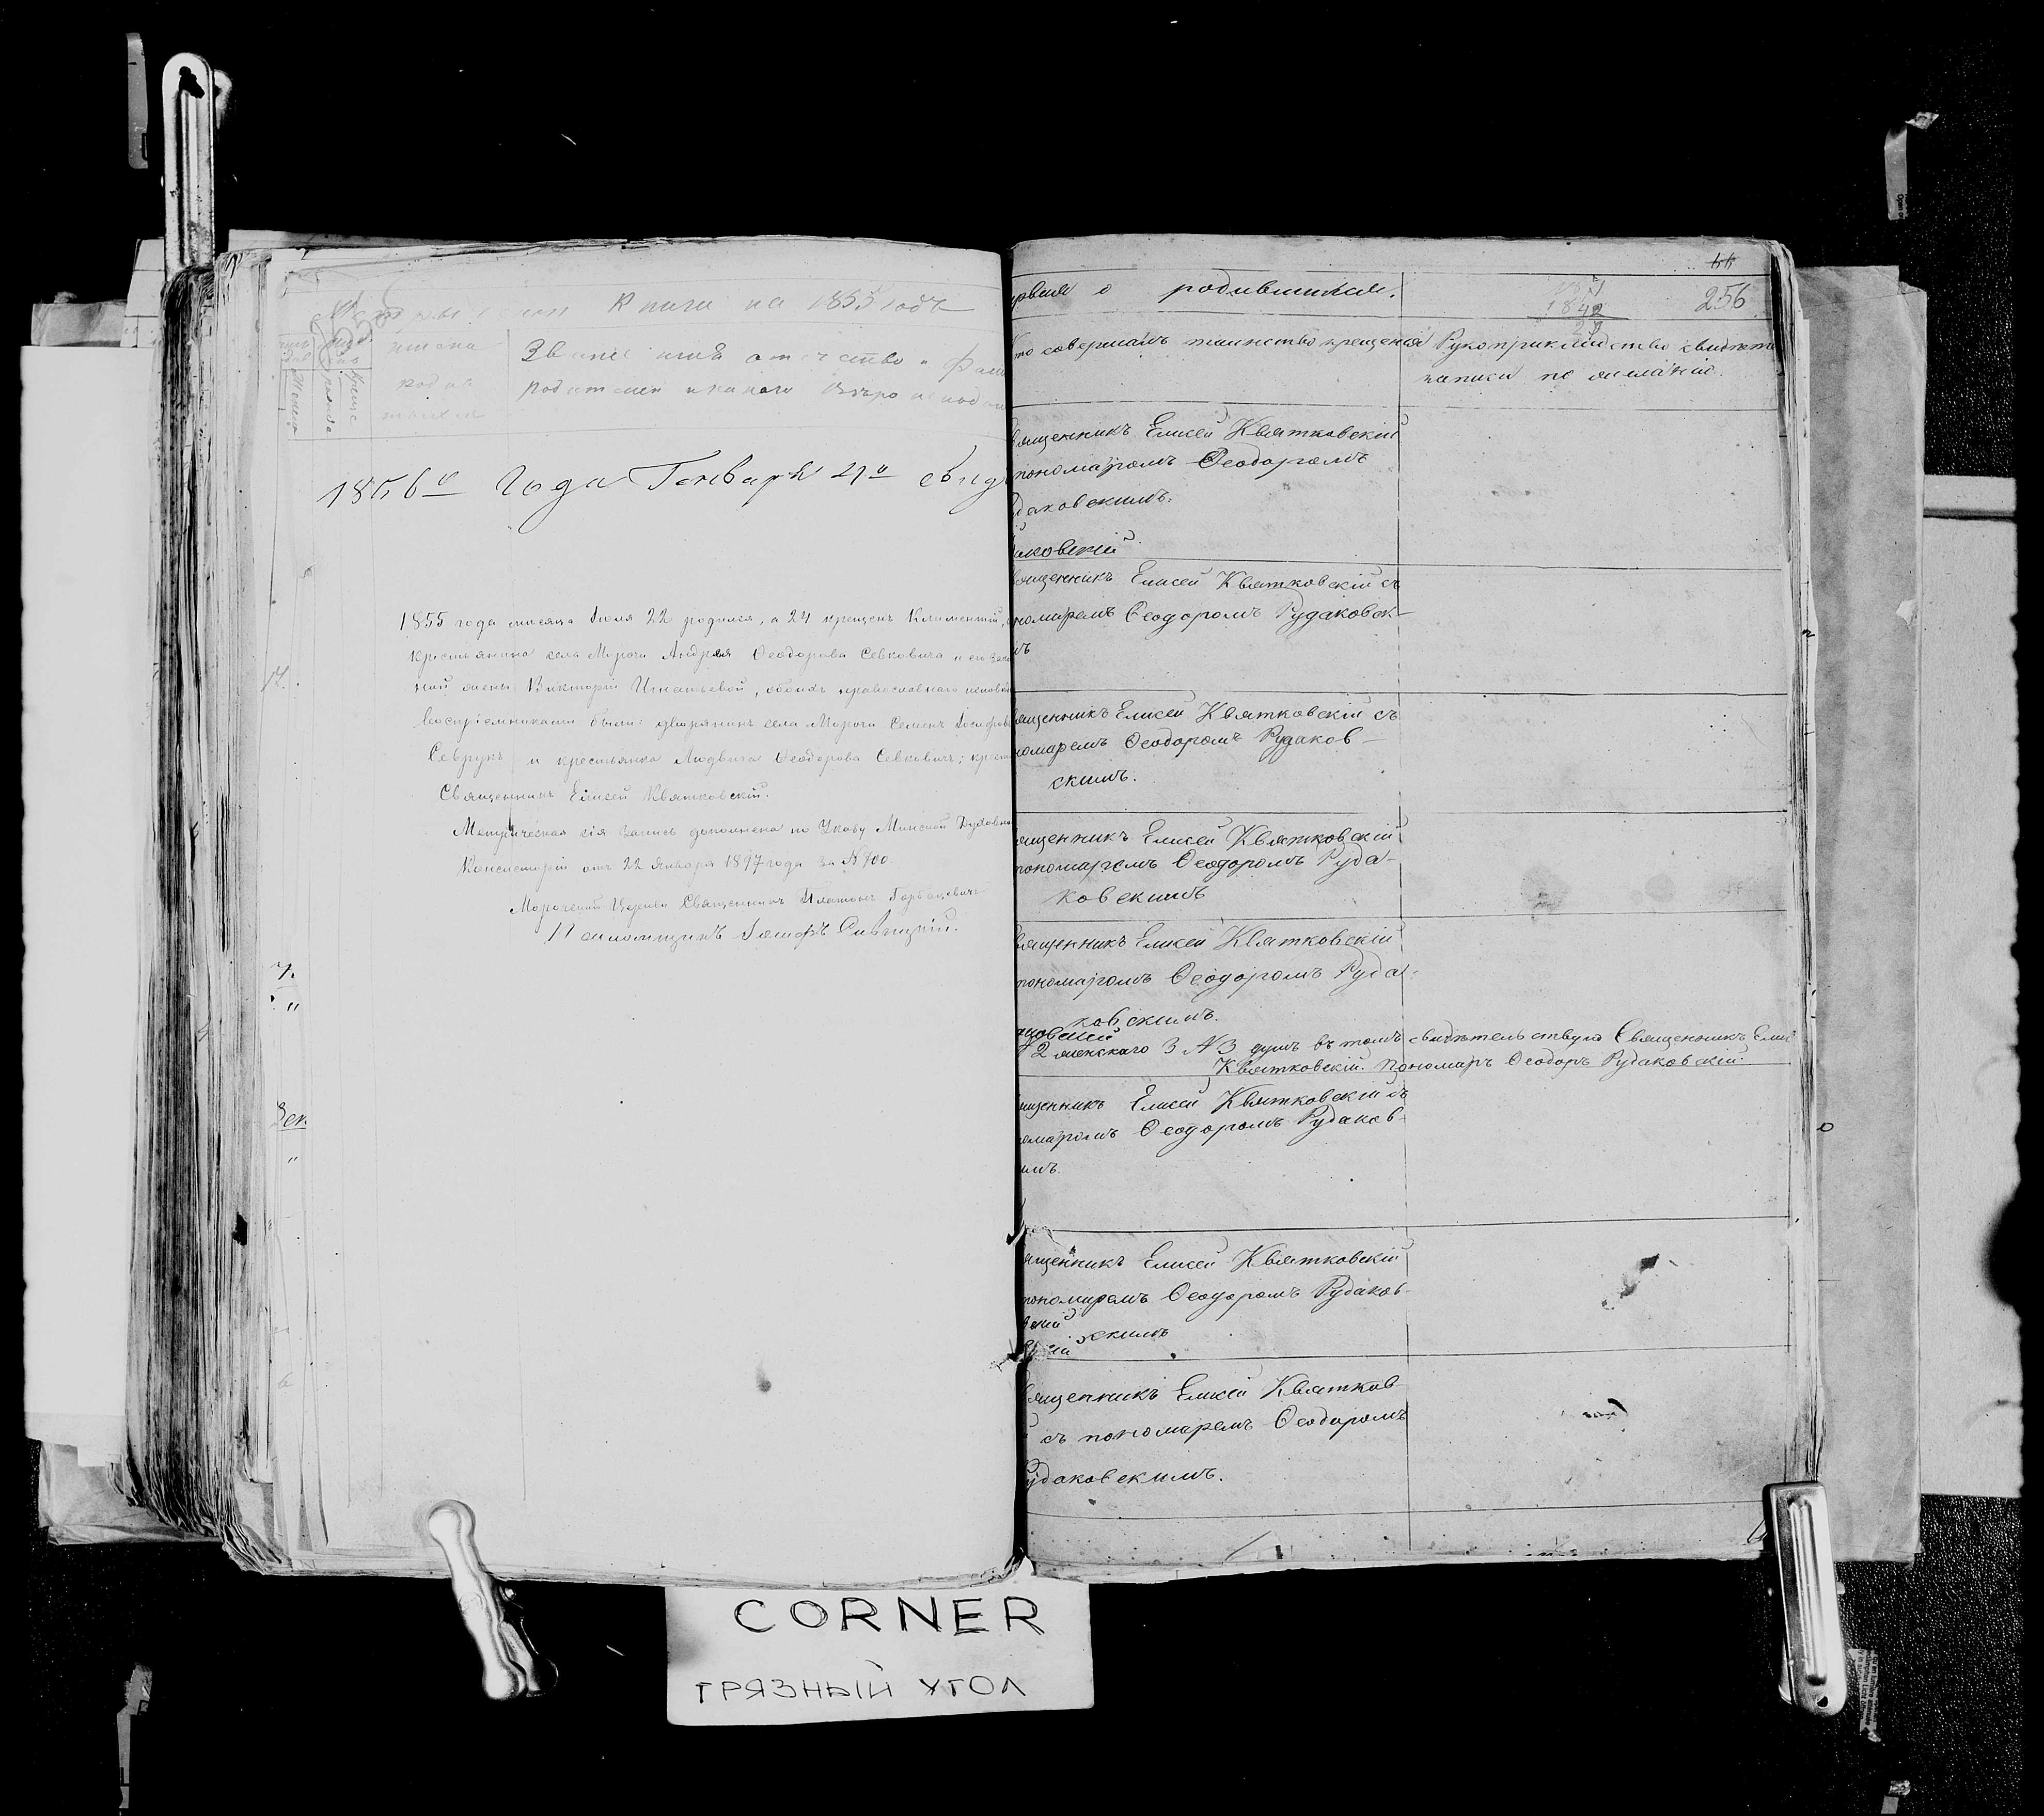 Книги на 1855 годъ
имена
родив
Званіе имя отчество и Фам
1856го Года Генваря
1855 года мѣсяца Іюля 22 родился, а 24 крещенъ Климентій,
крестьянина села Морочи Андрея Ѳеодорова Севковича и его зако
ной жены Викторіи Игнатьевой, обоихъ православнаго исповѣд
Воспріемниками были: дворянинъ села Морочи Семенъ Іосифов
Севрукъ и крестьянка Людвига Ѳеодорова Севковичъ; крест
Священникъ Елисей Квятковскій.
Метрическая сія запись дополнена по Указу Минской Духовно
Консисторіи отъ 22 Января 1897 года за №
Морочской Церкви Священникъ Платонъ
Псаломщикъ Іосифъ Савицкій.
14.
7.
"
Дек.
"
44
рвая о родившихся.
1842
256
то совершалъ таинство крещенія
Рукоприкладство свидѣте
записи по желанію.
вященникъ Елисей Квятковскій
пономаромъ Ѳеодоромъ
даковскимъ.
вященникъ Елисей Квятковскій съ
номаремъ Ѳеодоромъ Рудаковск-
мъ
ященникъ Елисей Квятковскій съ
номаремъ Ѳеодоромъ Рудаков-
скимъ.
ященникъ Елисей Квятковскій
пономаремъ Ѳеодоромъ Руда-
ковскимъ
вященникъ Елисей Квятковскій
пономаромъ Ѳеодоромъ Руда-
ковскимъ.
2 женскаго 3 душъ въ томъ свидѣтельствую Священникъ Елис
Квятковскій. Пономарь Ѳеодоръ Рудаковскій.
ященникъ Елисей Квятковскій съ
омаромъ Ѳеодоромъ Рудаков-
имъ.
ященникъ Елисей Квятковскій
пономаремъ Ѳеодоромъ Рудаков-
скимъ
вященникъ Елисей Квятков-
съ пономаремъ Ѳеодоромъ
Рудаковскимъ.
CORNER
ГРЯЗНЫЙ УГОЛ